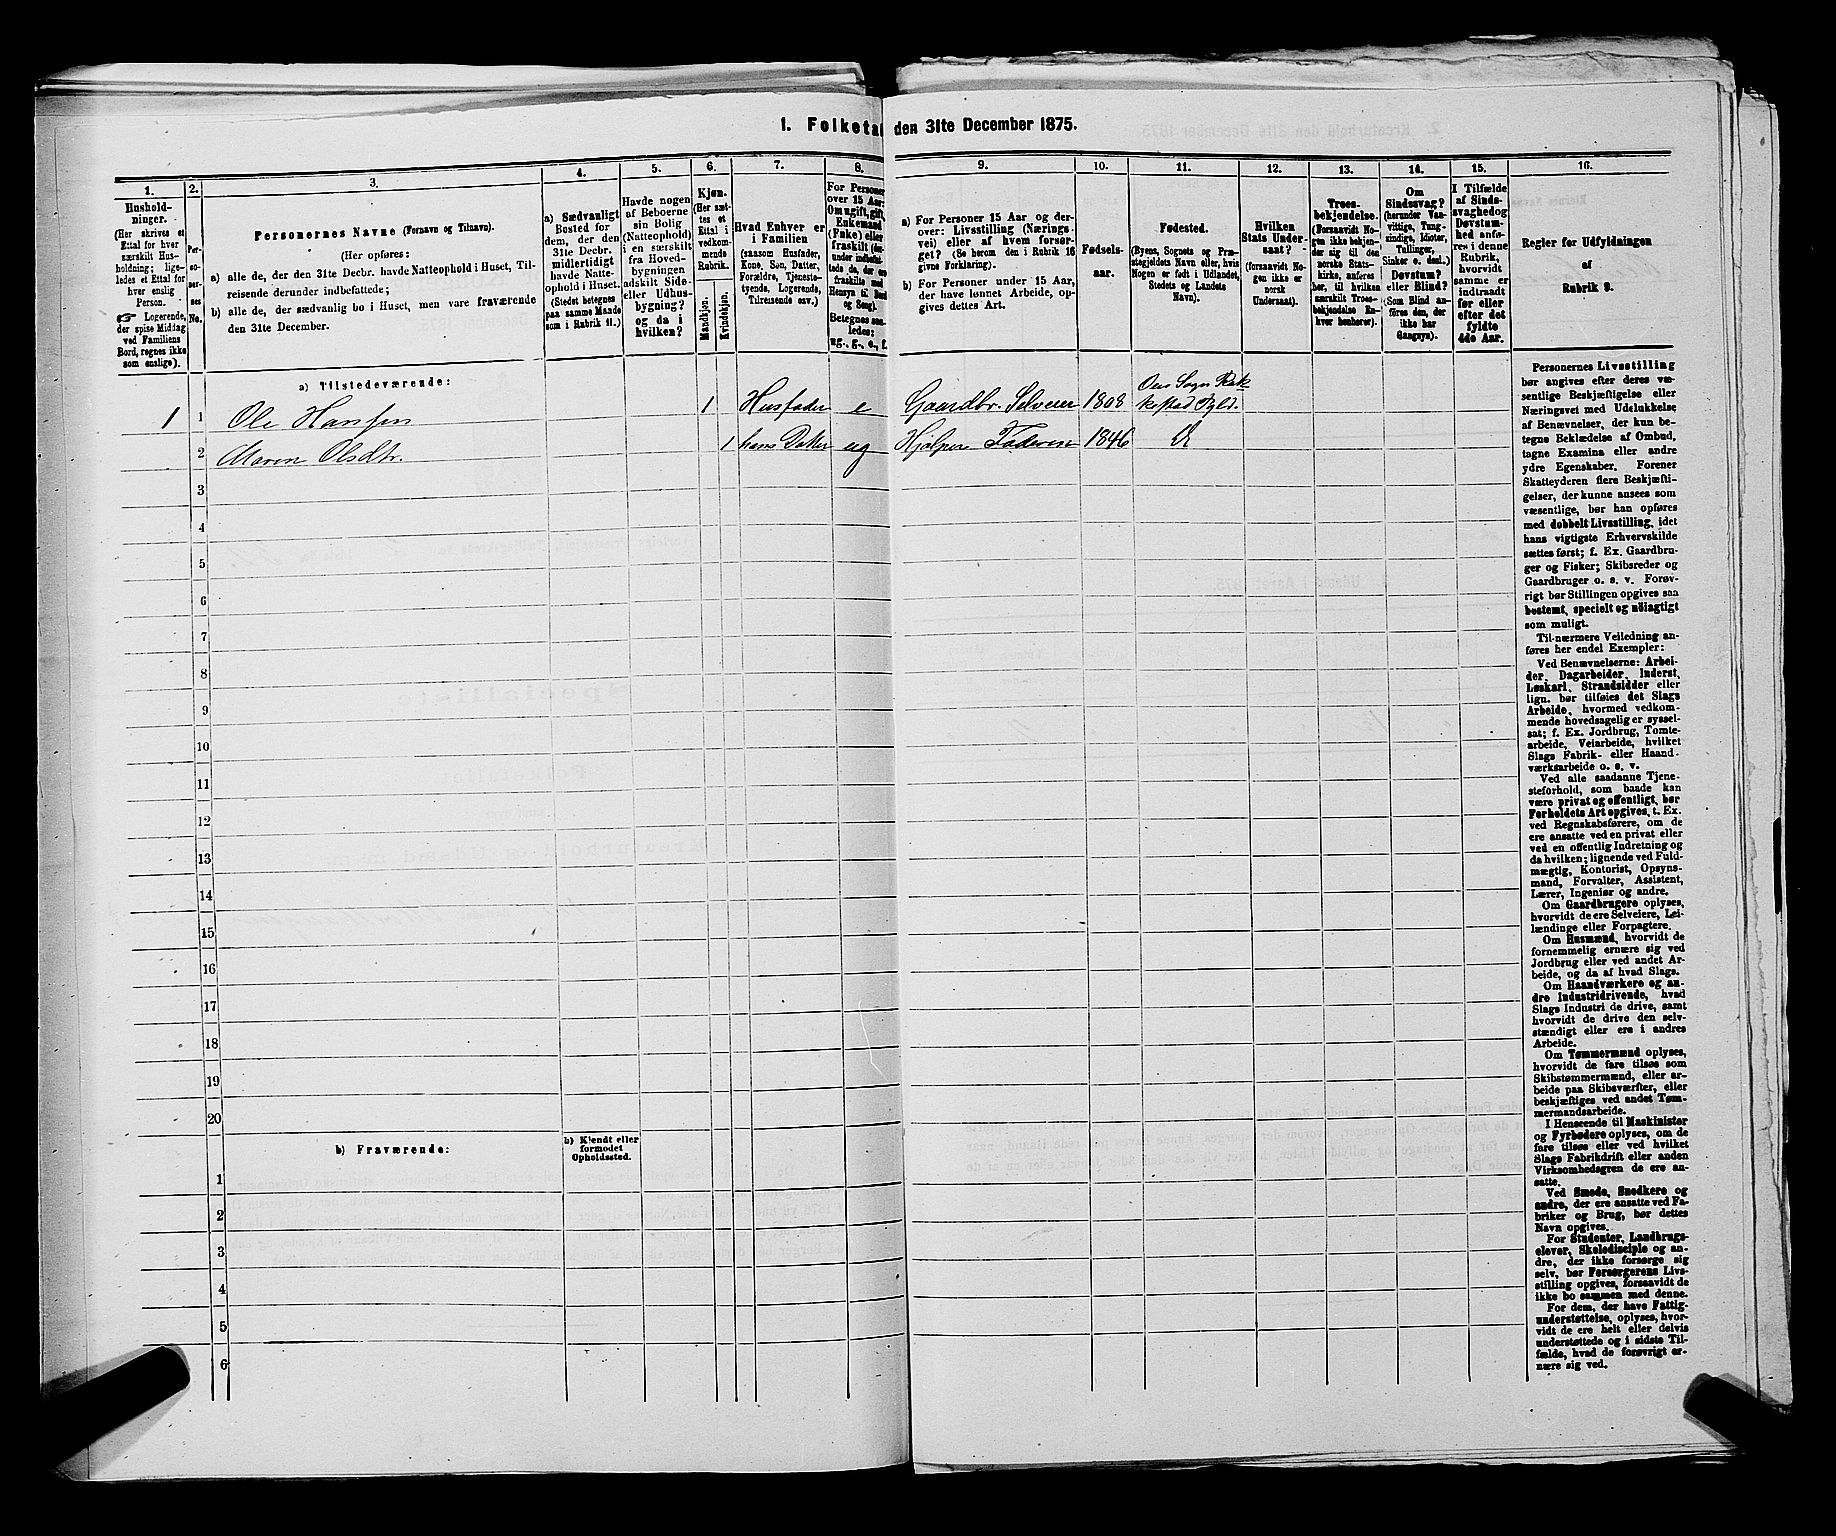 1. Folketal den 31te December 1875.
1. 2. 3. 4. 5. 6. 7. 8. 9. 10. 11. 12. 13. 14. 15. 16.
Hushold-
ninger.
(Her skrives et
Ettal for hver
særskilt Hus-
holdning; lige-
ledes et Ettal for
hver enslig
Person.
☞ Logerende,
der spise Middag
ved Familiens
Bord, regnes ikke
som enslige).
Per-
so-
ner-
nes
No.
Personernes Navne (Fornavn og Tilnavn).
(Her opføres:
a) alle de, der den 31te Decbr. havde Natteophold i Huset, Til-
reisende derunder indbefattede;
b) alle de, der sædvanlig bo i Huset, men vare fraværende
den 31te December.
a) Sædvanligt
Bosted for
dem, der den
31te Decbr.
midlertidigt
havde Natte-
ophold i Huset.
(Stedet betegnes
paa samme Maade
som i Rubrik 11.)
Havde nogen
af Beboerne
sin Bolig
(Natteophold)
i en særskilt
fra Hoved-
bygningen
adskilt Side-
eller Udhus-
bygning?
og da i
hvilken?
Kjøn.
(Her sæt-
tes et
Ettal i
vedkom-
mende
Rubrik.
Mandkjøn.
Kvindekjøn.
Hvad Enhver er
i Familien
(saasom Husfader,
Kone, Søn, Datter,
Forældre, Tjeneste-
tyende, Logerende,
Tilreisende osv.)
For Personer
over 15 Aar:
Om ugift, gift,
Enkemand
(Enke) eller
fraskilt (der-
under indbefat-
tede de, der ere
fraskilte med
Hensyn til Bord
og Seng).
Betegnes saa-
ledes:
ug., g., e., f.
a) For Personer 15 Aar og der-
over: Livsstilling (Nærings-
vei) eller af hvem forsør-
get? (Se herom den i Rubrik 16
givne Forklaring).
b) For Personer under 15 Aar,
der have lønnet Arbeide, op-
gives dettes Art.
Fødsels-
aar.
Fødested.
(Byens, Sognets og Præ-
stegjeldets Navn eller, hvis
Nogen er født i Udlandet,
Stedets og Landets
Navn).
Hvilken
Stats Under-
saat?
(forsaavidt No-
gen ikke er
norsk
Undersaat).
Troes-
bekjendelse.
(Forsaavidt No-
gen ikke bekjen-
der sig til den
norske Stats-
kirke, anføres
her, til hvilken
særskilt Troes-
bekjendelse En-
hver henhører).
Om
Sindssvag?
(herunder Van-
vittige, Tung-
sindige, Idioter,
Tullinger,
Sinker o. desl.)
Døvstum?
eller Blind?
(Som Blind an-
føres den, der
ikke har
Gangsyn).
I Tilfælde
af Sinds-
svaghed og
Døvstum-
hed anfø-
res i denne
Rubrik,
hvorvidt
samme er
indtraadt
før eller
efter det
fyldte
4de Aar.
Regler for Udfyldningen
af
Rubrik 9.
a) Tilstedeværende:
1 1 Ole Hansen 1 Husfader e Gaardbr. Selveier 1808 Ous Sogn Rak-
kestad Pgld.
2 Maren Olsdtr. 1 hans Datter ug Hjelper Faderen 1846 Do
3
4
5
6
7
8
9
10
11
12
13
14
15
16
17
18
19
20
b) Fraværende:
b) Kjendt eller
formodet
Opholdssted.
1
2
3
4
5
6
Personernes Livsstilling
bør angives efter deres væ-
sentlige Beskjæftigelse eller
Næringsvei med Udelukkelse
af Benævnelser, der kun be-
tegne Beklædelse af Ombud,
tagne Examina eller andre
ydre Egenskaber. Forener
Skatteyderen flere Beskjæfti-
gelser, der kunne ansees som
væsentlige, bør han opføres
med dobbelt Livsstilling, idet
hans vigtigste Erhvervskilde
sættes først; f. Ex. Gaardbru-
ger og Fisker; Skibsreder og
Gaardbruger o. s. v. Forøv-
rigt bør Stillingen opgives saa
bestemt, specielt og nöiagtigt
som muligt.
Til nærmere Veiledning an-
føres her endel Exempler:
Ved Benævnelserne: Arbei-
der, Dagarbeider, Inderst,
Løskarl, Strandsidder eller
lign. bør tilføies det Slags
Arbeide, hvormed vedkom-
mende hovedsagelig er syssel-
sat; f. Ex. Jordbrug, Tomte-
arbeide, Veiarbeide, hvilket
Slags Fabrik- eller Haand-
værksarbeide o. s. v.
Ved alle saadanne Tjene-
steforhold, som baade kan
være privat og offentligt, bør
Forholdets Art opgives, t. Ex.
ved Regnskabsførere, om de
ere ansatte ved en privat eller
ved en offentlig Indretning og
da hvilken; lignende ved Fuld-
mægtig, Kontorist, Opsyns-
mand, Forvalter, Assistent,
Lærer, Ingeniør og andre.
Om Gaardbrugere oplyses,
hvorvidt de ere Selveiere, Lei-
lændinge eller Forpagtere.
Om Husmænd, hvorvidt de
fornemmelig ernære sig ved
Jordbrug eller ved andet Ar-
beide, og da af hvad Slags.
Om Haandværkere og an-
dre Industridrivende, hvad
Slags Industri de drive, samt
hvorvidt de drive den selv-
stændigt eller ere i andres
Arbeide.
Om Tømmermænd oplyses,
hvorvidt de fare tilsøs som
Skibstømmermænd, eller ar-
beide paa Skibsværfter, eller
beskjæftiges ved andet Tøm-
mermandsarbeide.
I Henseende til Maskinister
og Fyrbødere oplyses, om de
fare tilsøs eller ved hvilket
Slags Fabrikdrift eller anden
Virksomhedsgren de ere an-
satte.
Ved Smede, Snedkere og
andre, der ere ansatte ved Fa-
briker og Brug, bør dettes
Navn opgives.
For Studenter, Landbrugs-
elever, Skoledisciple og an-
dre, der ikke forsørge sig
selv, bør Forsørgerens Livs-
stilling opgives, forsaavidt de
ikke bo sammen med denne.
For dem, der have Fattig-
understøttelse, oplyses, hvor-
vidt de ere helt eller delvis
understøttede og i sidste Til-
fælde, hvad de forøvrigt er-
nære sig ved.